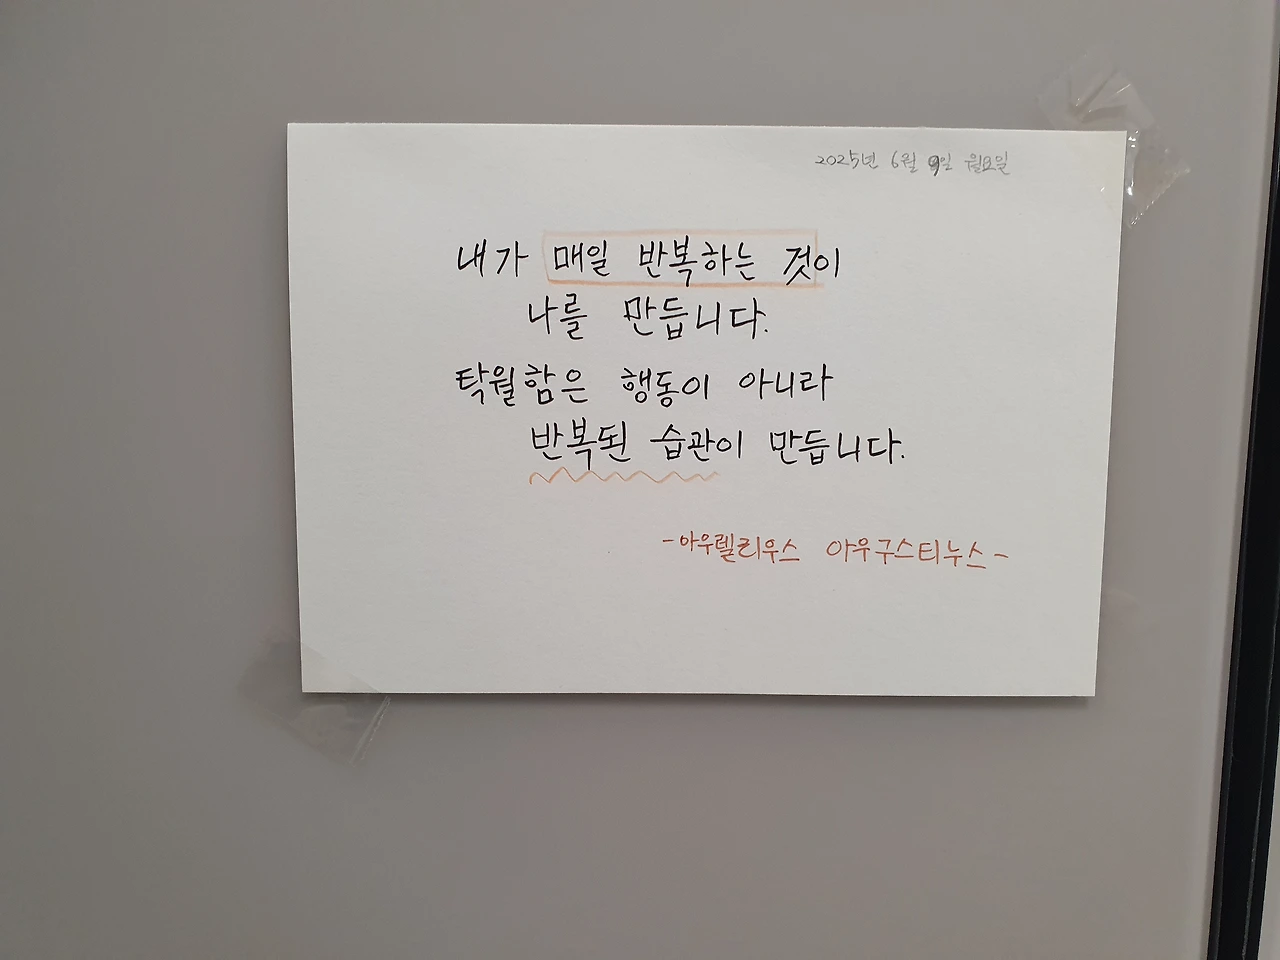 2025년 6월 9일 월요일
내가 매일 반복하는 것이
나를 만듭니다.
탁월함은 행동이 아니라
반복된 습관이 만듭니다.
-아우렐리우스 아우구스티누스-